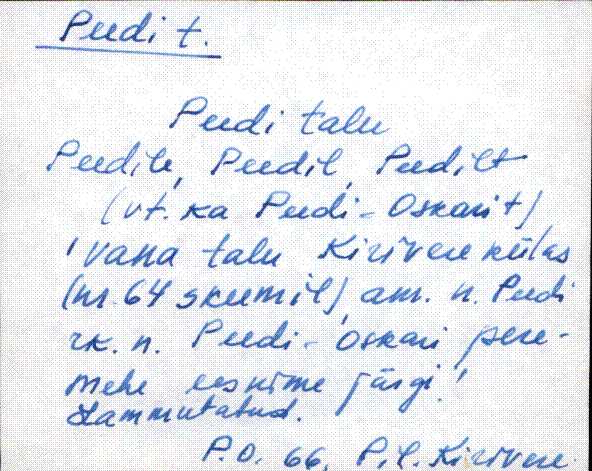 Peedi t.
Peedi talu
Peedile, Peedil, Peedilt
(vt. ka Peedi-Oskarit)
'vana talu Kirivere külas
(nr. 64 skeemil), am. n. Peedi
rk. n. Peedi-Oskari, pere-
mehe eesnime järgi!
Lammutatud.
P.O. 66, P.-l. Kirivere.